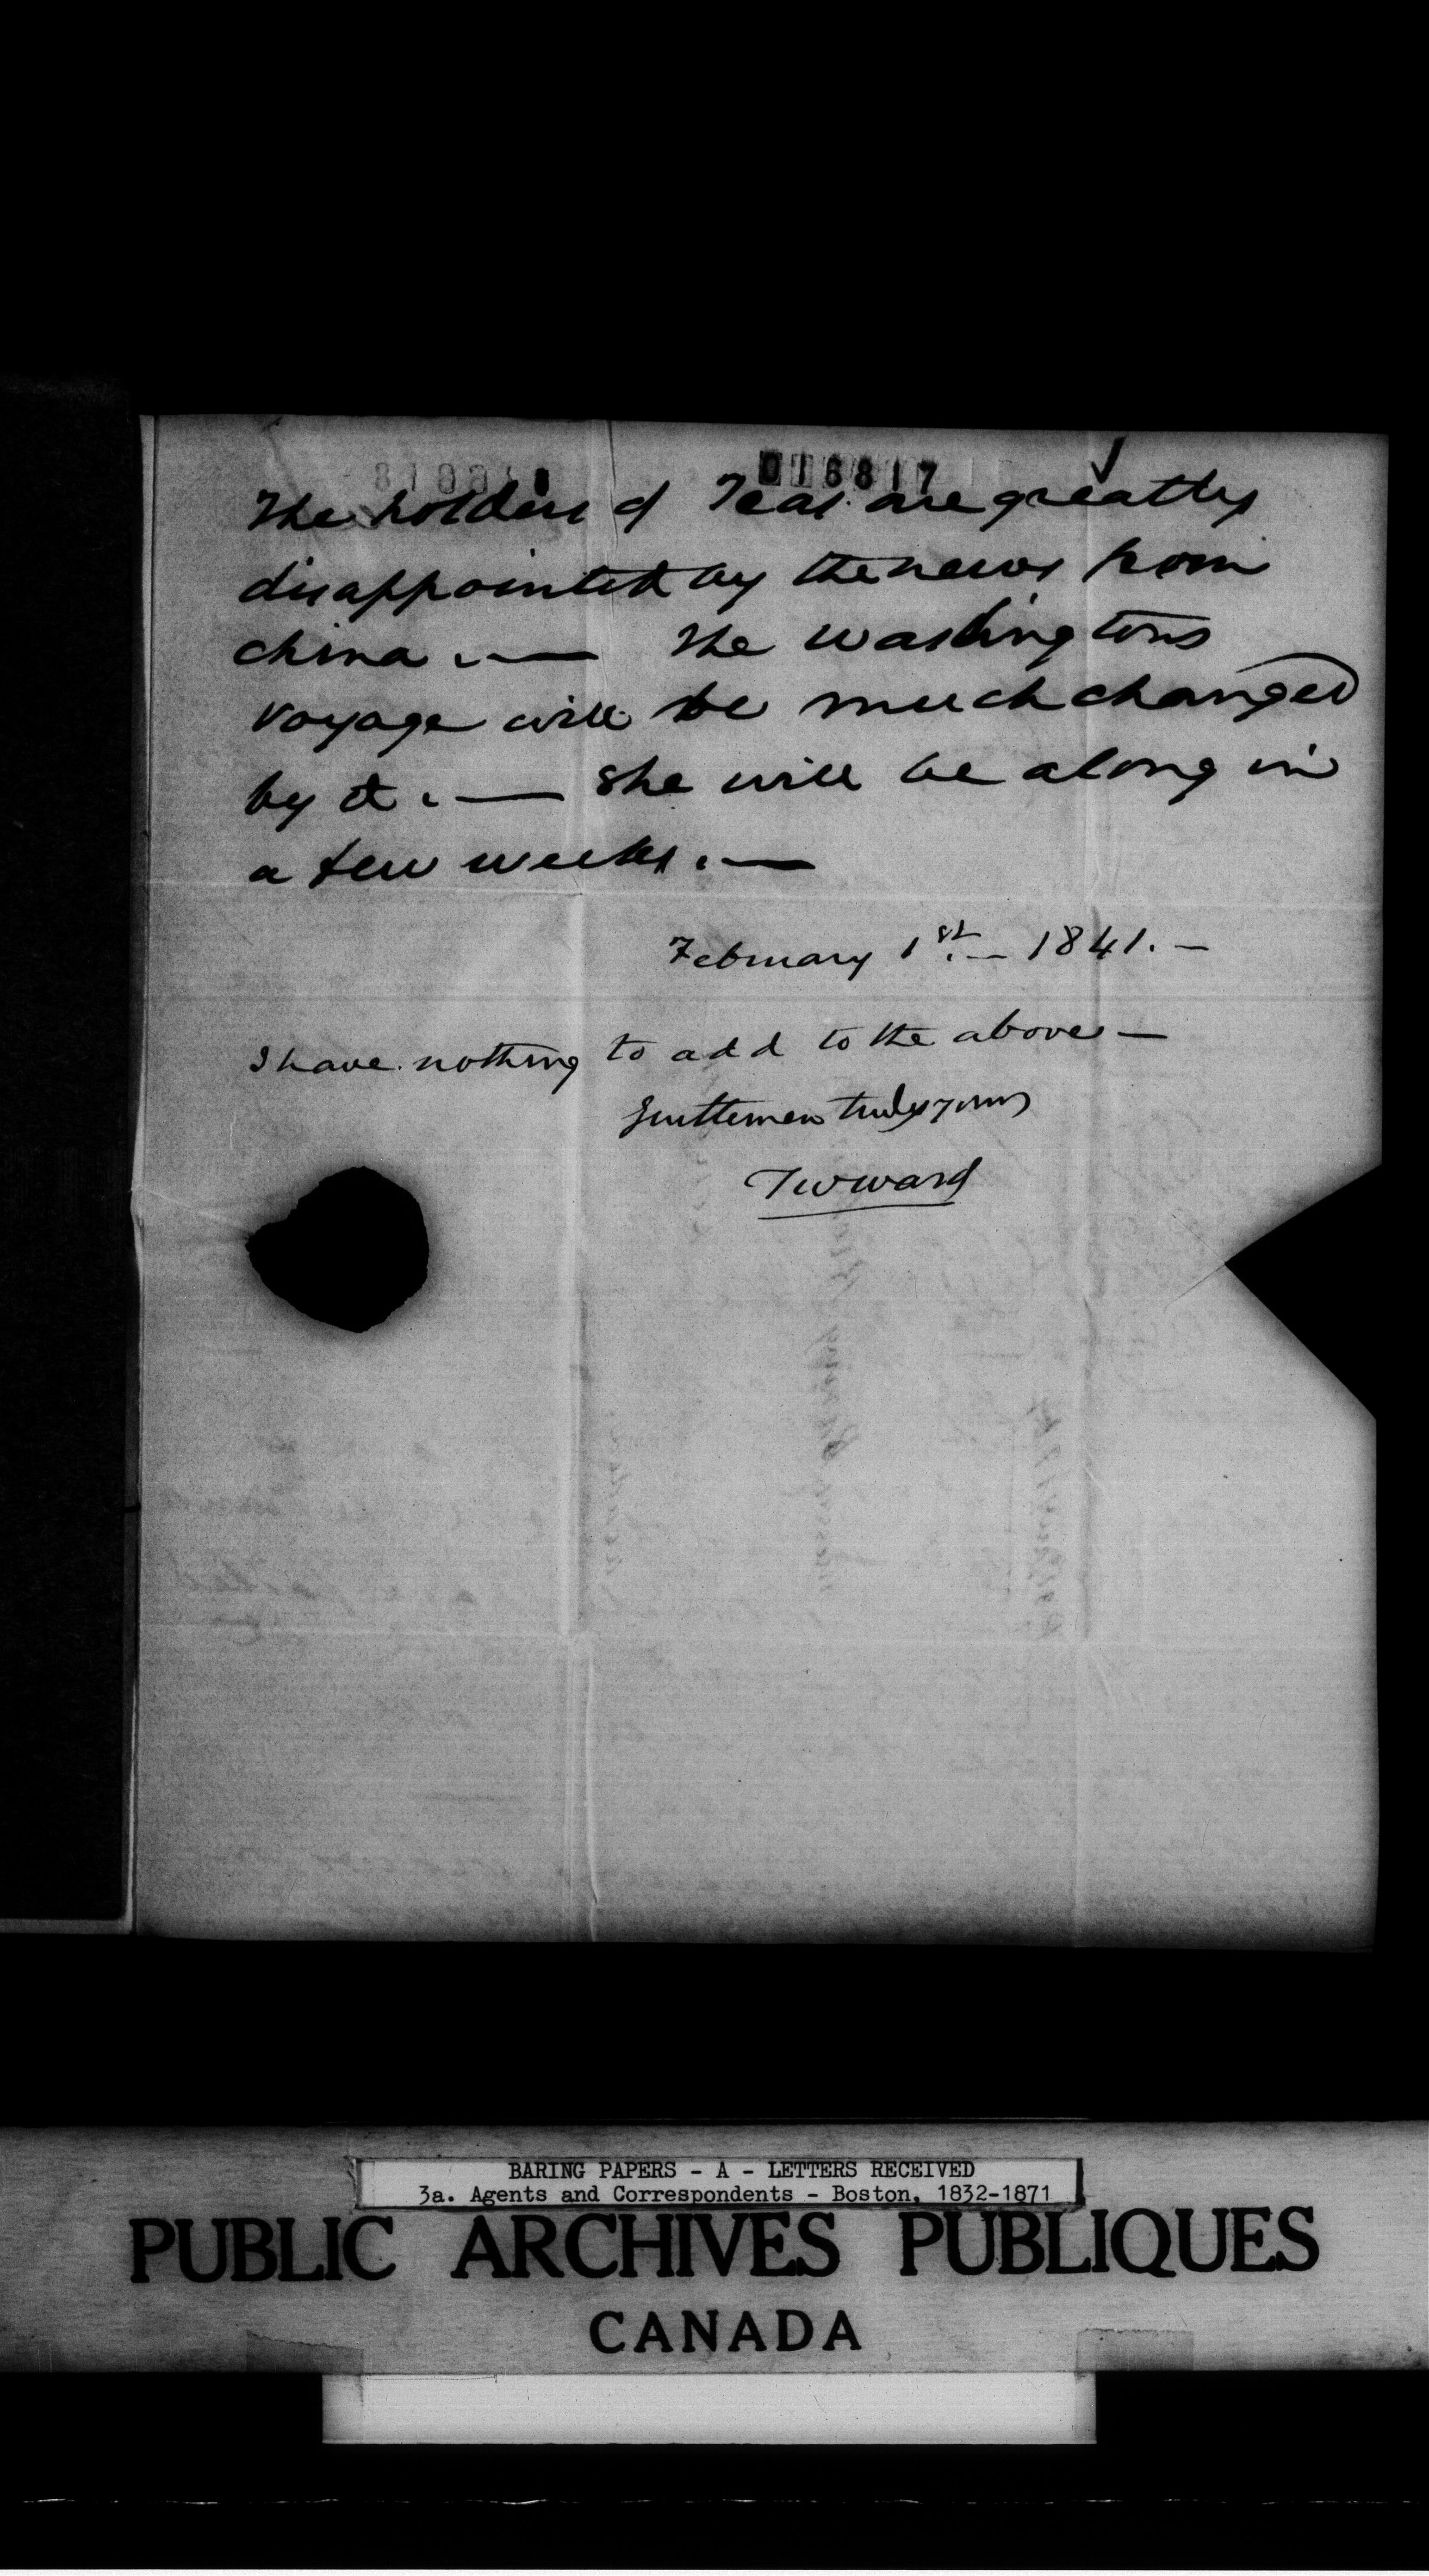 016817
The holders of Teas are greatly
disappointed by the news from
China. — The Washingtons
voyage will be much changed
by it. — She will be along in
a few weeks. —
February 1st. — 1841. —
I have nothing to add to the above —
Gentlemen truly yours
TWWard
BARING PAPERS - A - LETTERS RECEIVED
3a. Agents and Correspondents - Boston, 1832-1871
PUBLIC ARCHIVES PUBLIQUES
CANADA